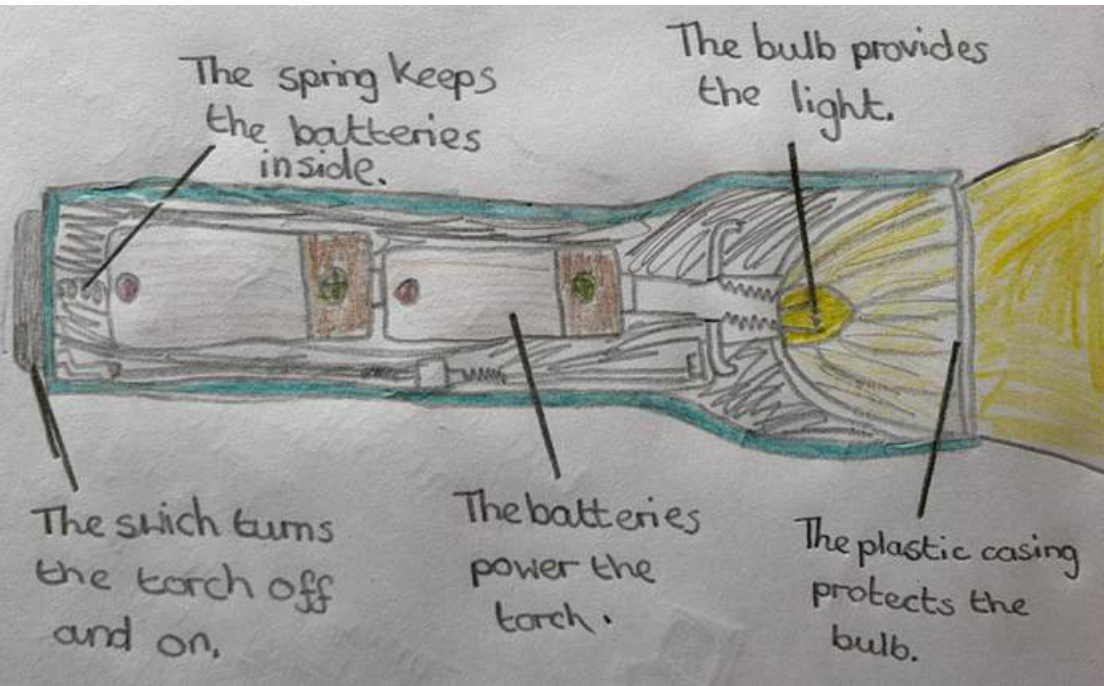 The spring keeps
the batteries
inside.
The bulb provides
the light.
The swich turns
the torch off
and on.
The batteries
power the
torch.
The plastic casing
protects the
bulb.